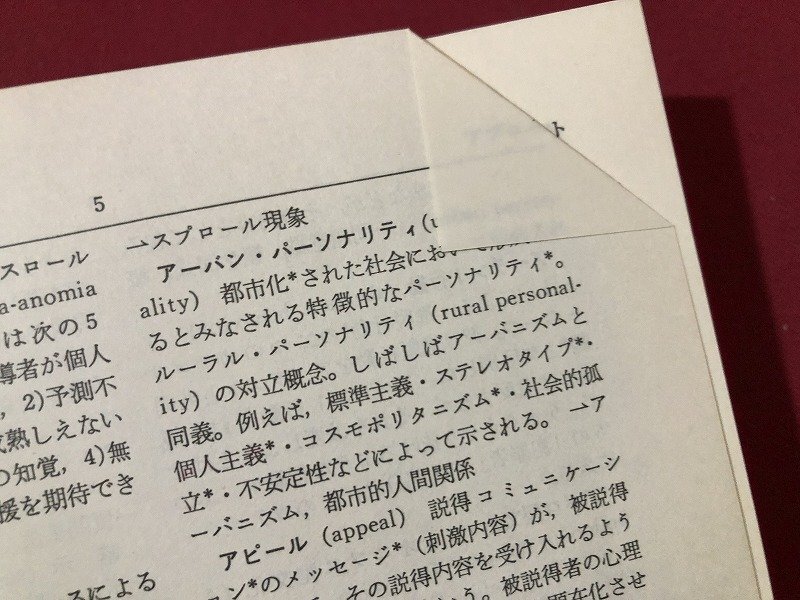 ト
5
スロール
a-anomia
は次の5
導者が個人
，2)予測不
成熟しえない
の知覚，4)無
援を期待でき
スによる
→スプロール現象
アーバン・パーソナリティ(u
ality) 都市化*された社会において
るとみなされる特徴的なパーソナリティ*。
ルーラル・パーソナリティ (rural personal-
ity) の対立概念。しばしばアーバニズムと
同義。例えば，標準主義・ステレオタイプ*・
個人主義*・コスモポリタニズム*・社会的孤
立*・不安定性などによって示される。 →ア
ーバニズム，都市的人間関係
アピール (appeal) 説得コミュニケーシ
ョン*のメッセージ* (刺激内容) が，被説得
その説得内容を受け入れるよう
う。被説得者の心理
顕在化させ